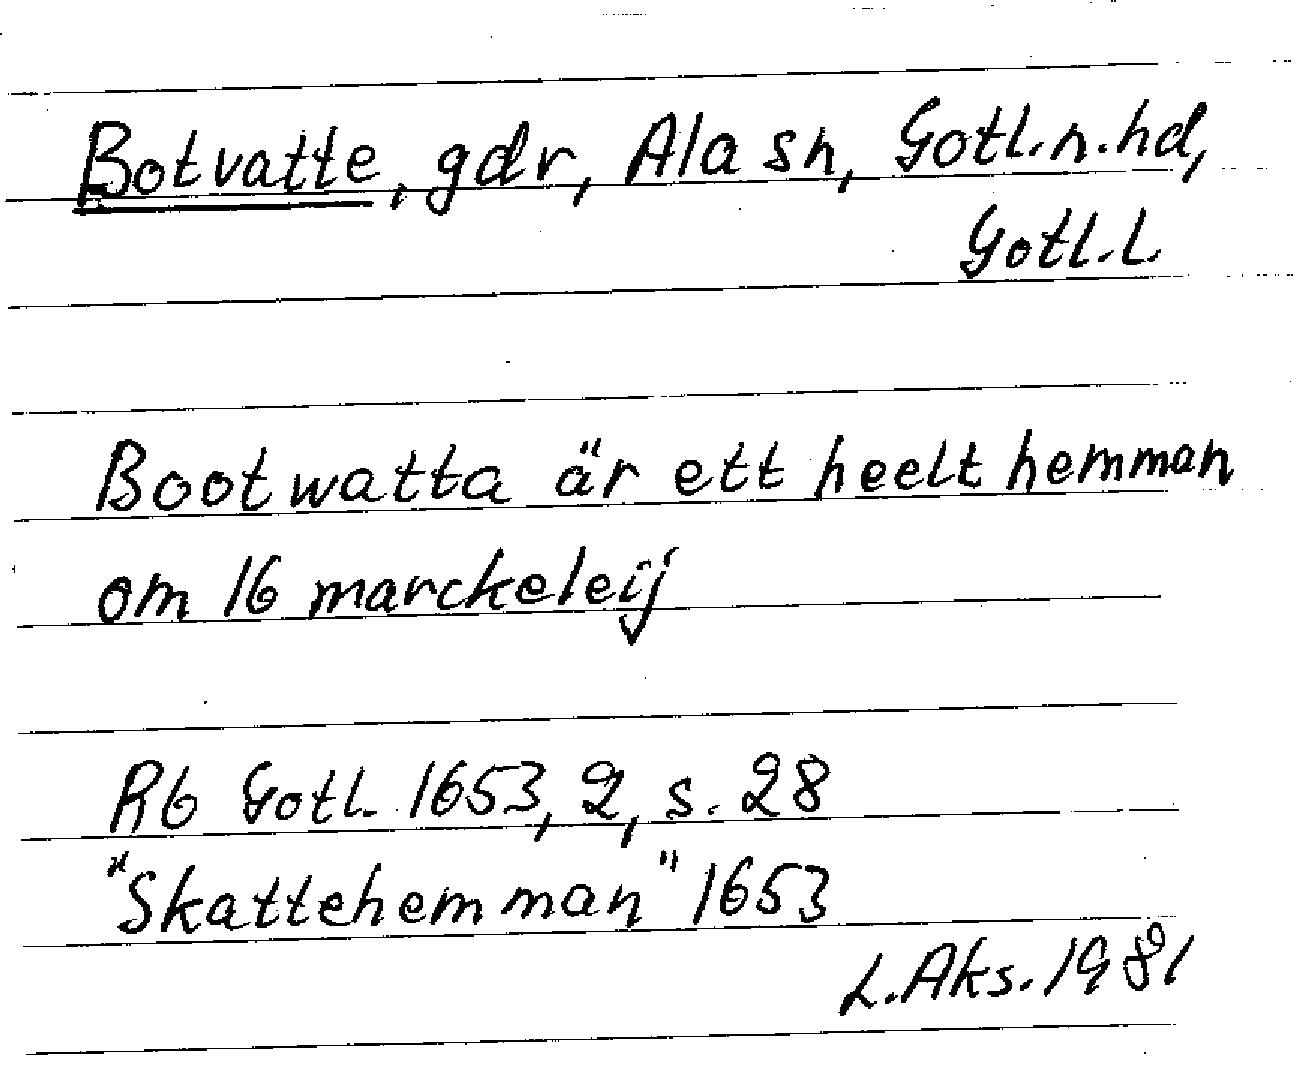 Botvatte, gdr, Ala sn, Gotl.n.hd,
Gotl.L
Bootwatta är ett heelt hemman
om 16 marckeleij
Rb Gotl. 1653, 2, s. 28
"Skattehemman" 1653
L.Aks. 1981